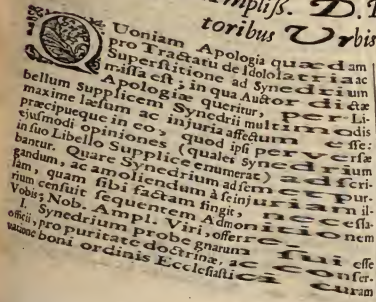 mpliſſ. D.
toribus Urbis
QUoniam Apologia quædam
pro Tractatu de Idololatria ac
Superſtitione ad Synedrium
miſſa eſt; in qua Auctor dictæ
Apologiæ queritur, per Li-
bellum supplicem Synedrii multimodis
maxime læſum ac injuria affectum eſſe:
præcipueque in eo, quod ipſi perverſæ
ejuſmodi opiniones (quales Synedrium
in ſuo Libello Supplice enumerat) adſcri-
bantur. Quare Synedrium ad ſem pur-
gandum, ac amoliendum à ſe injuriam il-
lam, quam ſibi factam fingit, neceſſa-
rium cenſuit ſequentem Admonitionem
Vobis, Nob. Ampl. Viri, offerre.
I. Synedrium probe gnarum ſui eſſe
officii, pro puritate doctrinæ, ac conſer-
vatione boni ordinis Eccleſiaſtici curam